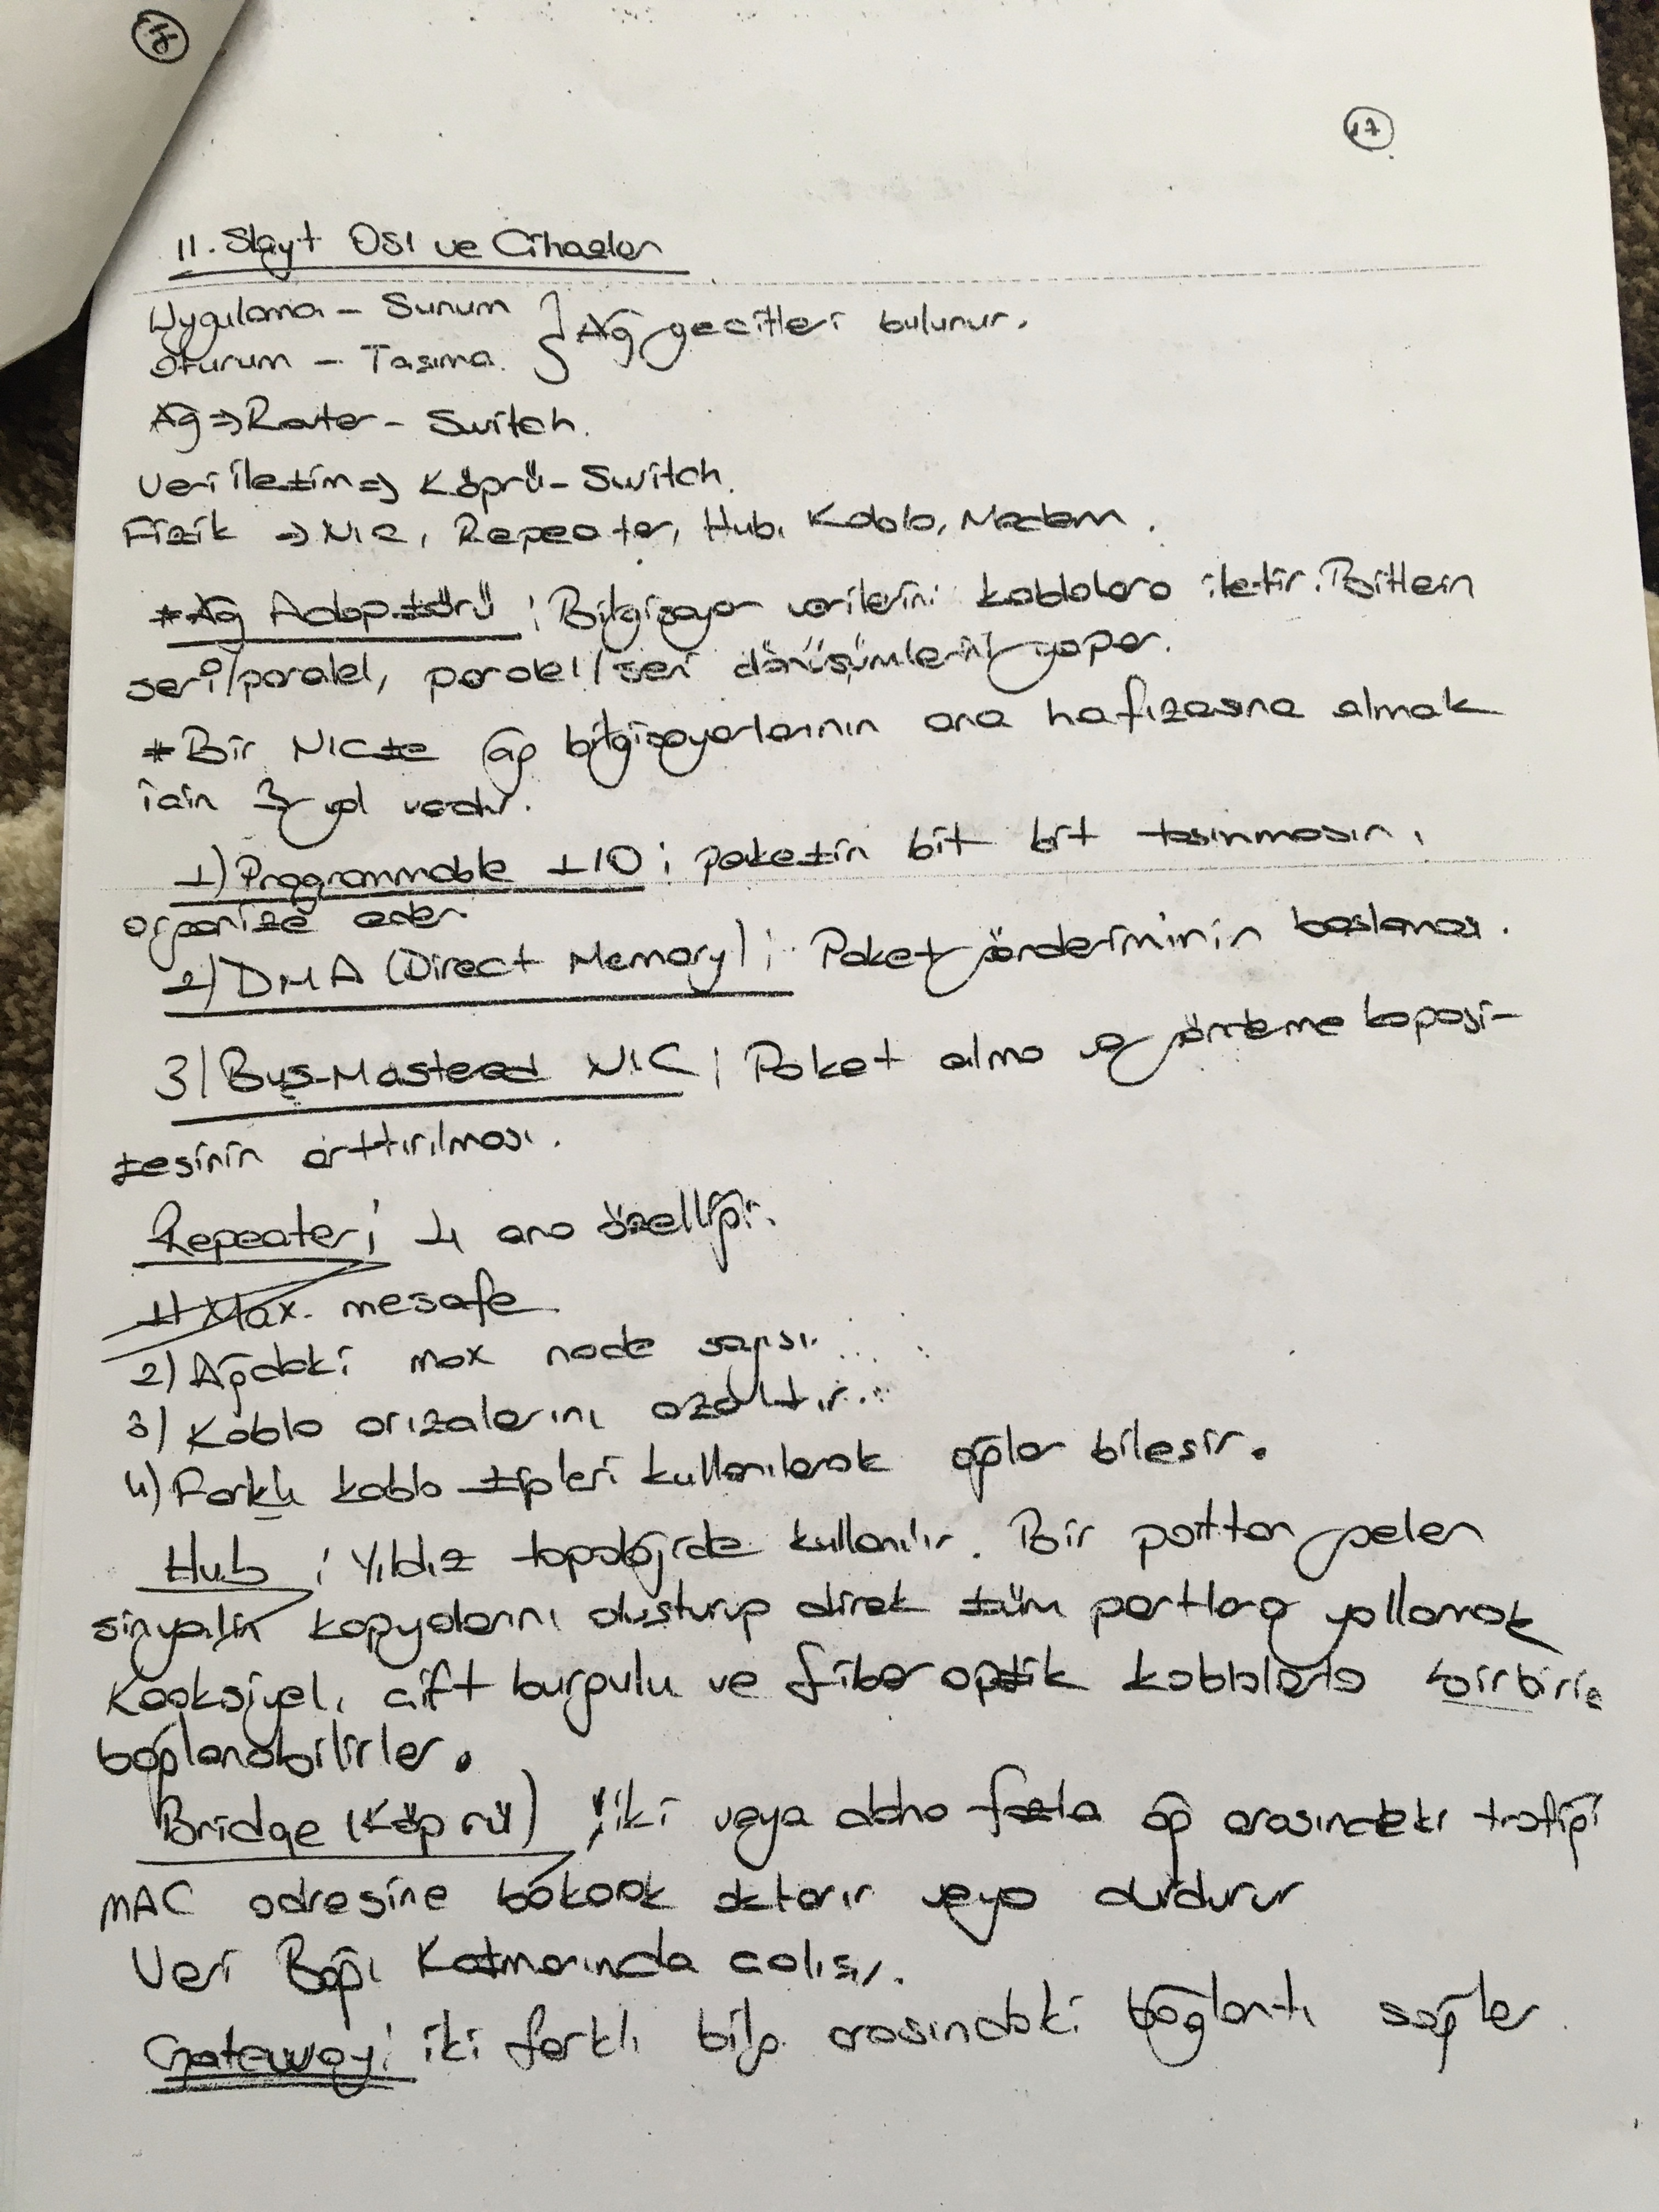 17
11. Slayt OSI ve Cihazlar
Uygulama - Sunum } Ağ geçitleri bulunur.
Oturum - Taşıma
Ağ => Router - Switch.
Veri iletim => Köprü - Switch.
Fizik => NIC, Repeater, Hub, Kablo, Modem.
* Ağ Adaptörü ; Bilgisayar verilerini kablolara iletir. Bitlerin
seri/paralel, paralel/seri dönüşümlerini yapar.
* Bir NICte ağ bilgisayarlarının ana hafızasına almak
için 3 yol vardır.
1) Programmable I/O ; paketin bit bit taşınmasın.
organize eder.
2) DMA (Direct Memory) ; Paket gönderiminin başlaması.
3) Bus-Mastered NIC ; Paket alma ve gönderme kapasi-
tesinin arttırılması.
Repeater ; 4 ana özelliği.
1) Max. mesafe
2) Ağdaki max node sayısı.
3) Kablo arızalarını azaltır.
4) Farklı kablo tipleri kullanılarak ağlar bileşir.
Hub ; Yıldız topolojide kullanılır. Bir porttan gelen
sinyalin kopyalarını oluşturup direk tüm portlara yollamak
Koaksiyel, çift burgulu ve fiber optik kablolarla birbirie
bağlanabilirler.
Bridge (Köprü) ; iki veya daha fazla ağ arasındaki trafiği
MAC adresine bakarak aktarır veya durdurur
Veri Bağı Katmanında çalışır.
Gateway ; iki farklı bilg. arasındaki bağlantı sağlar.